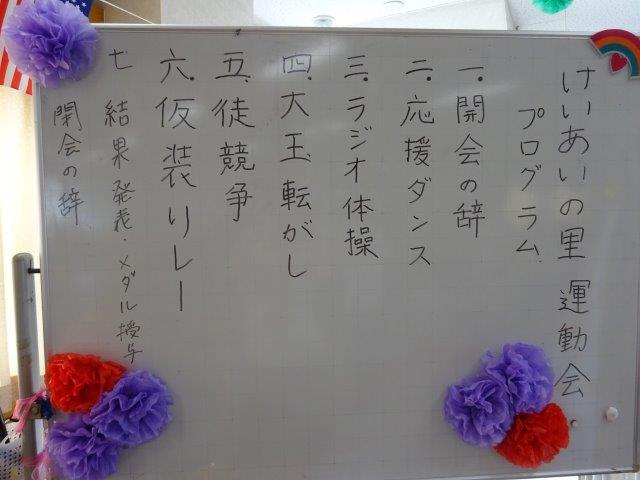 けいあいの里 運動会
プログラム
一.開会の辞
二.応援ダンス
三.ラジオ体操
四.大玉転がし
五.徒競争
六.仮装リレー
七 結果発表・メダル授与
閉会の辞